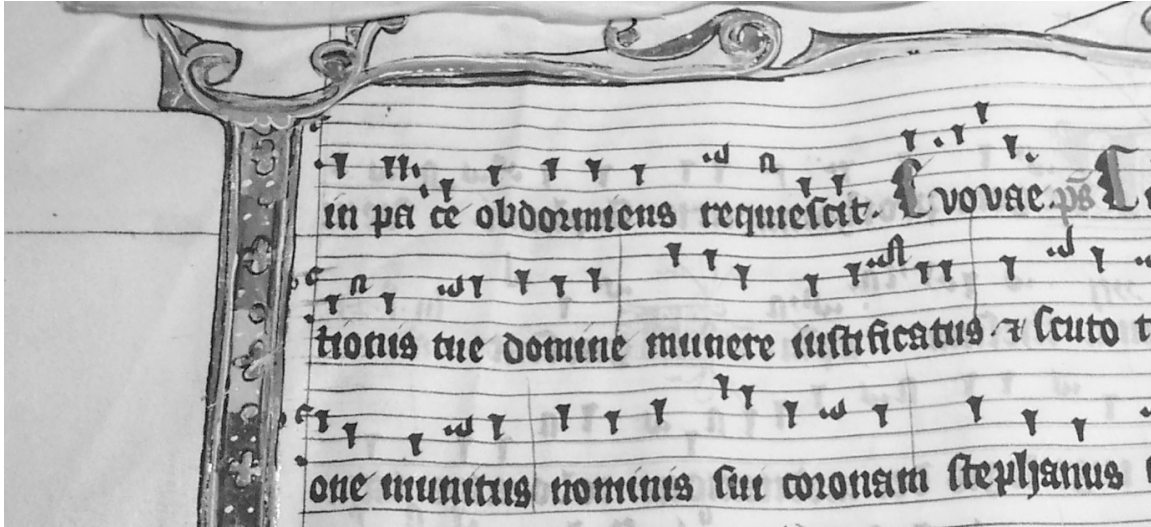 in pa ce obdormiens requiescit. Evovae. ps
tionis tue domine munere iustificatus. ⁊ scuto t
one munitus nominis sui coronam stephanus